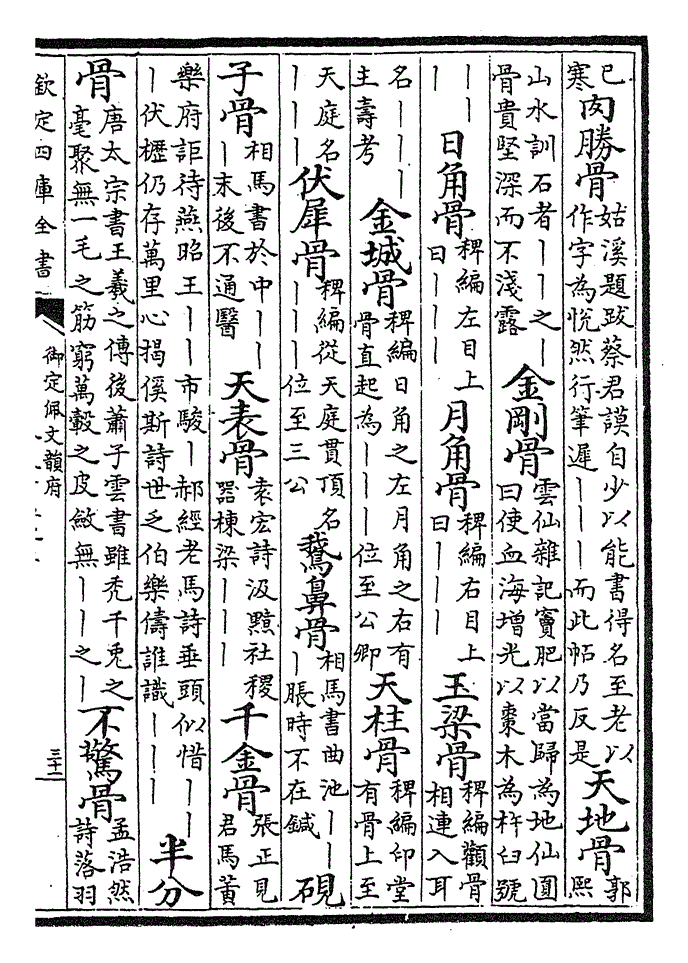 已寒肉勝骨姑溪題跋蔡君謨自少以能書得名至老以作字為悅然行筆遲丨丨丨而此帖乃反是天地骨郭熙
山水訓石者丨丨之丨骨貴堅深而不淺露金剛骨雲仙雜記竇肥以當歸為地仙圓曰使血海增光以棗木為杵臼號
丨丨丨日角骨稗編左目上曰丨丨丨月角骨稗編右目上曰丨丨丨玉梁骨稗編顴骨相連入耳
名丨丨丨主壽考金城骨稗編日角之左月角之右有骨直起為丨丨丨位至公卿天柱骨稗編印堂有骨上至
天庭名丨丨丨伏犀骨稗編從天庭貫頂名丨丨丨位至三公鵝鼻骨相馬書曲池丨丨丨脹時不在鍼硯
子骨相馬書於中丨丨丨末後不通醫天表骨袁宏詩汲黯社稷器棟梁丨丨丨千金骨張正見君馬黃
樂府詎待燕昭王丨丨市駿丨郝經老馬詩垂頭似惜丨丨丨伏櫪仍存萬里心揭傒斯詩世乏伯樂儔誰識丨丨丨半分
骨唐太宗書王羲之傳後蕭子雲書雖禿千兔之毫聚無一毛之筋窮萬縠之皮斂無丨丨之丨不驚骨孟浩然詩落羽
欽定四庫全書
御定佩文韻府
三十二